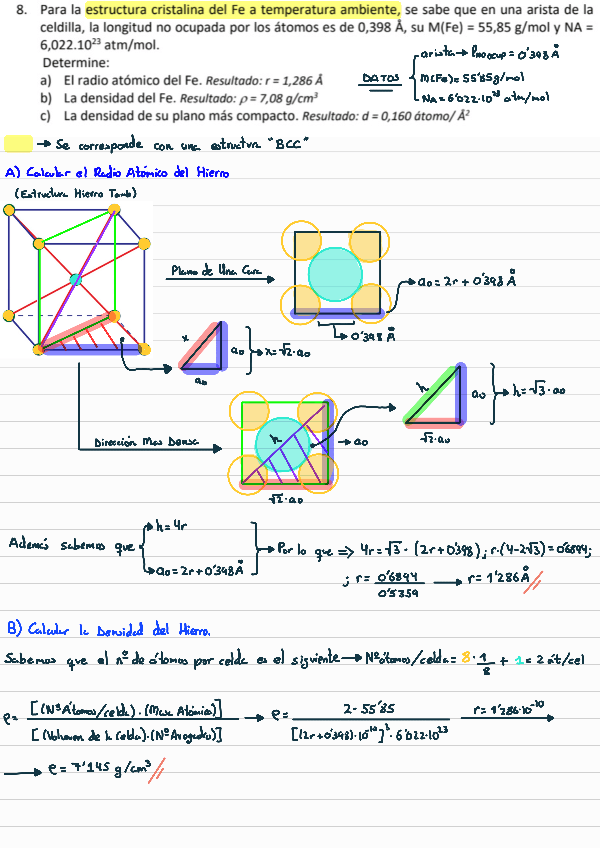 8. Para la estructura cristalina del Fe a temperatura ambiente, se sabe que en una arista de la
celdilla, la longitud no ocupada por los átomos es de 0,398 Å, su M(Fe) = 55,85 g/mol y NA =
6,022.10²³ atm/mol.
Determine:
a) El radio atómico del Fe. Resultado: r = 1,286 Å
b) La densidad del Fe. Resultado: ρ = 7,08 g/cm³
c) La densidad de su plano más compacto. Resultado: d = 0,160 átomo/ Å²
DATOS
arista → Pnoocup = 0'398 Å
M(Fe) = 55'85 g/mol
NA = 6'022·10²³ atm/mol
→ Se corresponde con una estructura "BCC"
A) Calcular el Radio Atómico del Hierro
(Estructura Hierro Tamb)
Plano de Una Cara
→ a₀ = 2r + 0'398 Å
→ 0'398 Å
x
a₀
a₀
→ x = √2·a₀
Dirección Mas Densa
h
→ a₀
√2·a₀
h
a₀
√2·a₀
→ h = √3·a₀
Además sabemos que
→ h = 4r
→ a₀ = 2r + 0'398 Å
→ Por lo que ⇒ 4r = √3 · (2r + 0'398) ; r·(4-2√3) = 0'6894;
; r = 0'6894 / 0'5359 → r = 1'286 Å
B) Calcular la Densidad del Hierro.
Sabemos que el nº de átomos por celda es el siguiente → Nº átomos/celda = 8·1/8 + 1 = 2 át/cel
ρ = [(Nº Átomos/celda)·(Masa Atómica)] / [(Volumen de la Celda)·(Nº Avogadro)] → ρ = 2·55'85 / [(2r+0'398)·10⁻¹⁰]³·6'022·10²³ r = 1'286·10⁻¹⁰ →
→ ρ = 7'145 g/cm³